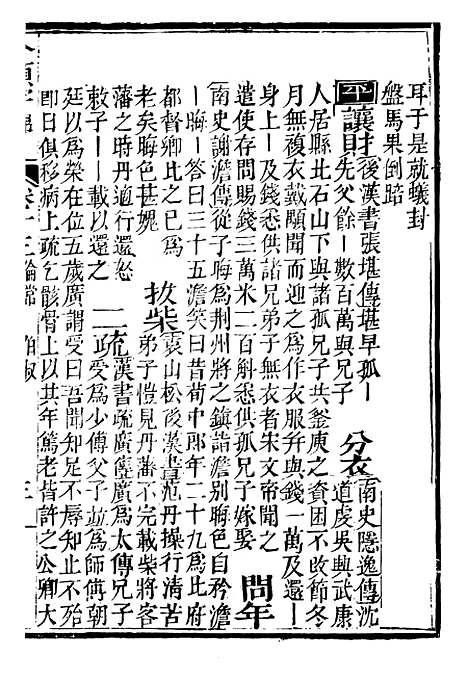 耳于是就蟻封
盤馬果倒踣
平 讓財
後漢書張堪傳堪早孤丨
先父餘丨數百萬與兄子
分衣
南史隱逸傳沈
道虔吳興武康
人居縣北石山下與諸孤兄子共釜庾之資困不改節冬
月無複衣戴顒聞而迎之為作衣服幷與錢一萬及還丨
身上丨及錢悉供諸兄弟子無衣者宋文帝聞之
遣使存問賜錢三萬米二百斛悉供孤兄子嫁娶
問年
南史謝澹傳從子晦為荆州將之鎮詣澹別晦色自矜澹
丨晦丨答曰三十五澹笑曰昔荀中郎年二十九為北府
都督卿比之已為
老矣晦色甚媿
拔柴
袁山松後漢書范丹操行清苦
弟子愷見丹藩不完載柴將客
藩之時丹適行還怒
敕子丨丨載以還之
二疏
漢書疏廣傳廣為太傅兄子
受為少傅父子並為師傅朝
廷以為榮在位五歲廣謂受曰吾聞知足不辱知止不殆
即日俱移病上疏乞骸骨上以其年篤老皆許之公卿大
卷十三倫常 伯叔 三